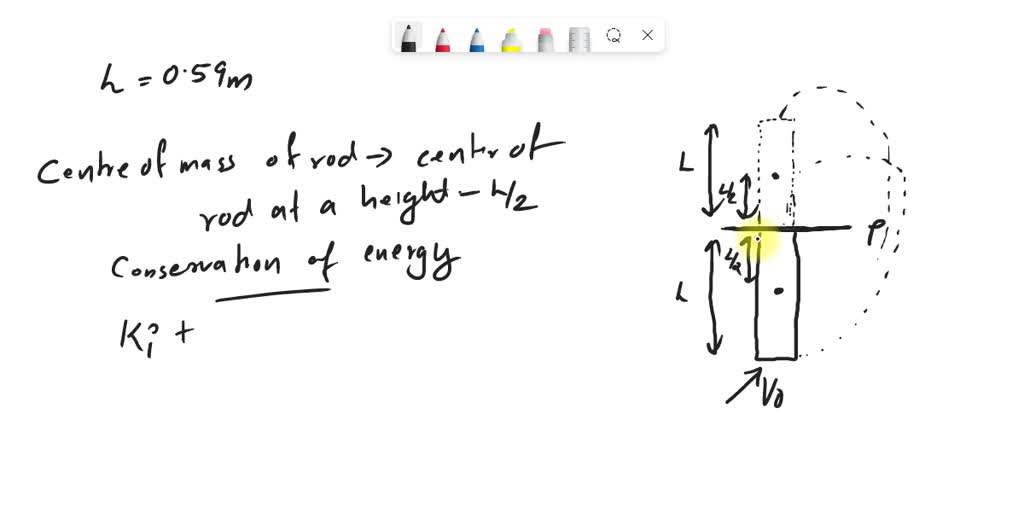 h = 0.59m
Centre of mass of rod → center of
rod at a height - h/2
Conservation of energy
Ki +
L
L/2
P
L/2
L
V0